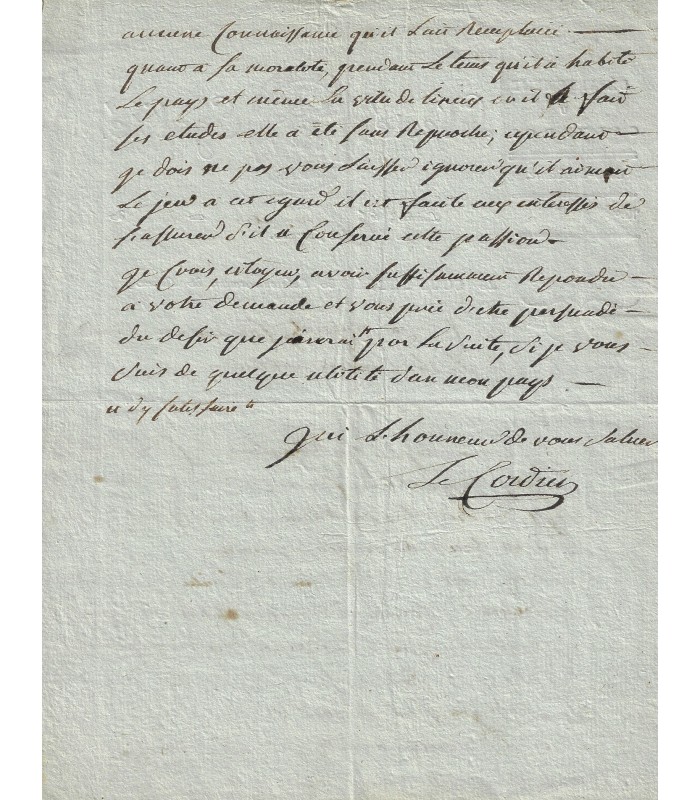 aucune Connaissance qu'il l'ait Remplacé. —
quant à sa moralité, pendant le tems qu'il à habité
Le pays et même La ville de où il à fait
ses etudes elle a été sans Reproche; cependant —
je dois ne pas vous laisser ignorer qu'il aimait
Le jeu a cet egard il est faute aux interessés de
s'assurer s'il à Conservé cette passion.
je Crois, citoyen, avoir suffisamment Repondu —
à votre demande et vous prie d'etre persuadé
du desir que j'aurai " par la suite, si je vous —
suis de quelque utilité dans mon pays —
" d'y satisfaire "
j'ai L'honneur de vous saluer
Le Cordier